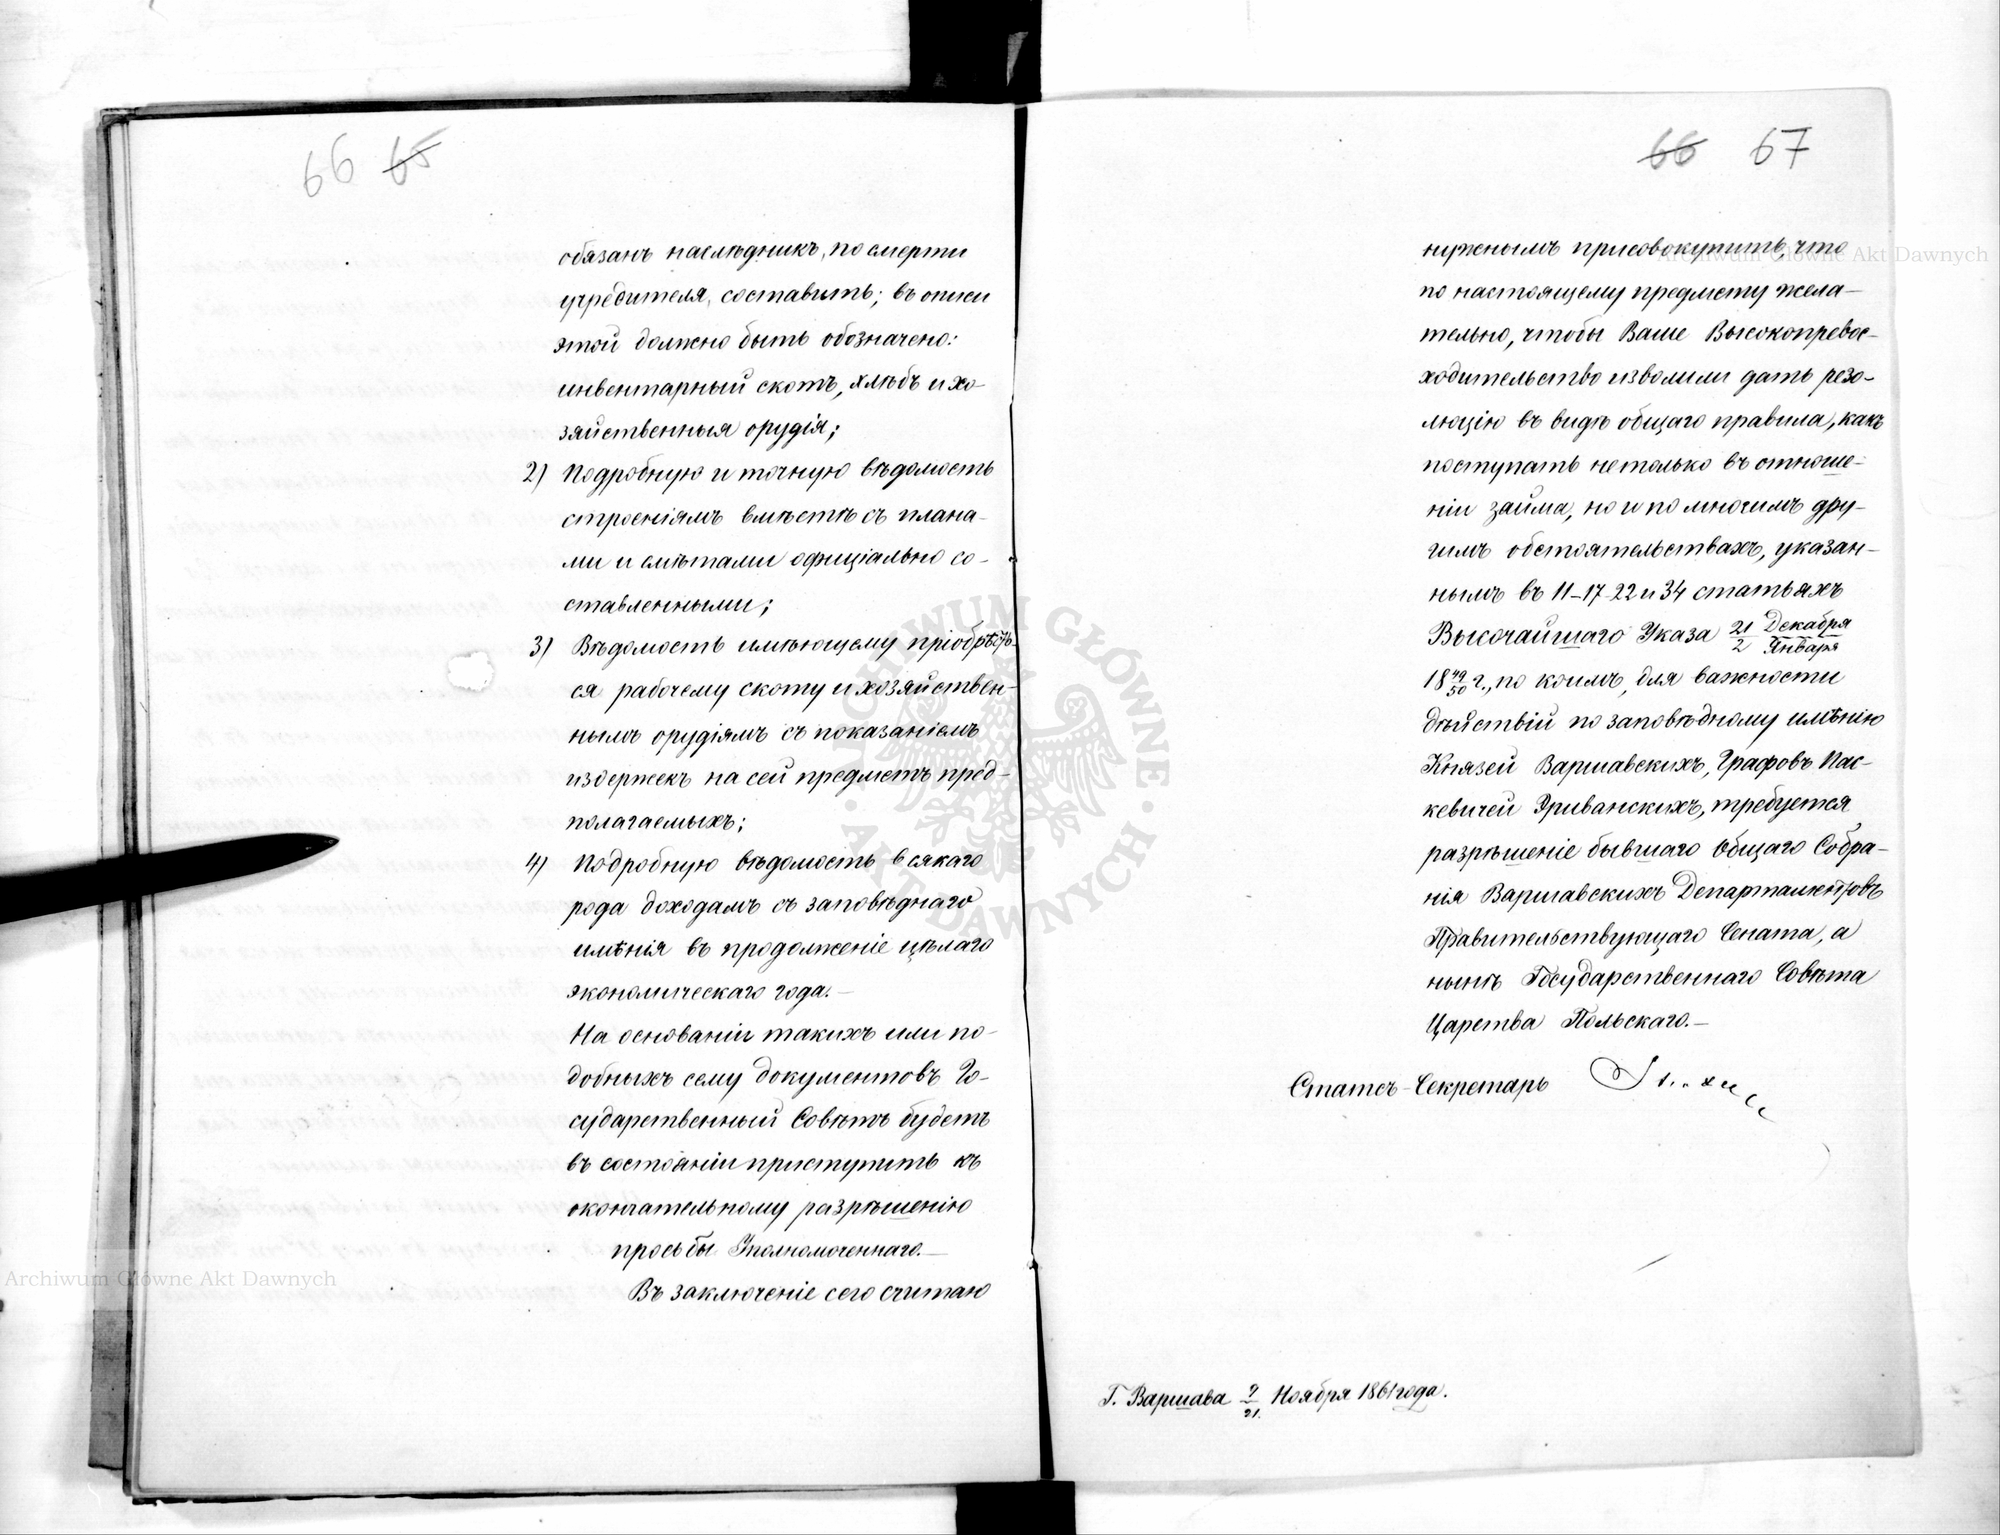 66 65
обязанъ наслѣдникъ, по смерти
учредителя, составить; въ описи
этой должно быть обозначено:
инвентарный скотъ, хлѣбъ и хо-
зяйственныя орудія;
2) Подробную и точную вѣдомость
строеніямъ вмѣстѣ съ плана-
ми и смѣтами официіально со-
ставленными;
3) Вѣдомость имѣющему пріобрѣсть-
ся рабочему скоту и хозяйствен-
нымъ орудіямъ съ показаніемъ
издержекъ на сей предметъ пред-
полагаемыхъ;
4) Подробную вѣдомость всякаго
рода доходамъ съ заповѣднаго
имѣнія въ продолженіе цѣлаго
экономическаго года.—
На основаніи такихъ или по-
добныхъ сему документовъ Го-
сударственный Совѣтъ будетъ
въ состояніи приступить къ
окончательному разрѣшенію
просьбы Уполномоченнаго.—
Въ заключеніе сего считаю
66 67
нужнымъ присовокупить, что
по настоящему предмету жела-
тельно, чтобы Ваше Высокопревос-
ходительство изволили дать резо-
люцію въ видѣ общаго правила, какъ
поступать не только въ отноше-
ніи займа, но и по многимъ дру-
гимъ обстоятельствахъ, указан-
нымъ въ 11-17-22 и 34 статьяхъ
Высочайшаго Указа 21/2 Декабря/Января
18 49/50 г., по коимъ, для важности
дѣйствій по заповѣдному имѣнію
Князей Варшавскихъ, Графовъ Пас-
кевичей Эриванскихъ, требуется
разрѣшеніе бывшаго Общаго Собра-
нія Варшавскихъ Департаментовъ
Правительствующаго Сената, а
нынѣ Государственнаго Совѣта
Царства Польскаго.—
Статсъ-Секретарь
Г. Варшава 9/21 Ноября 1861 года.
Archiwum Główne Akt Dawnych
Archiwum Główne Akt Dawnych
ARCHIWUM GŁÓWNE · AKT DAWNYCH ·